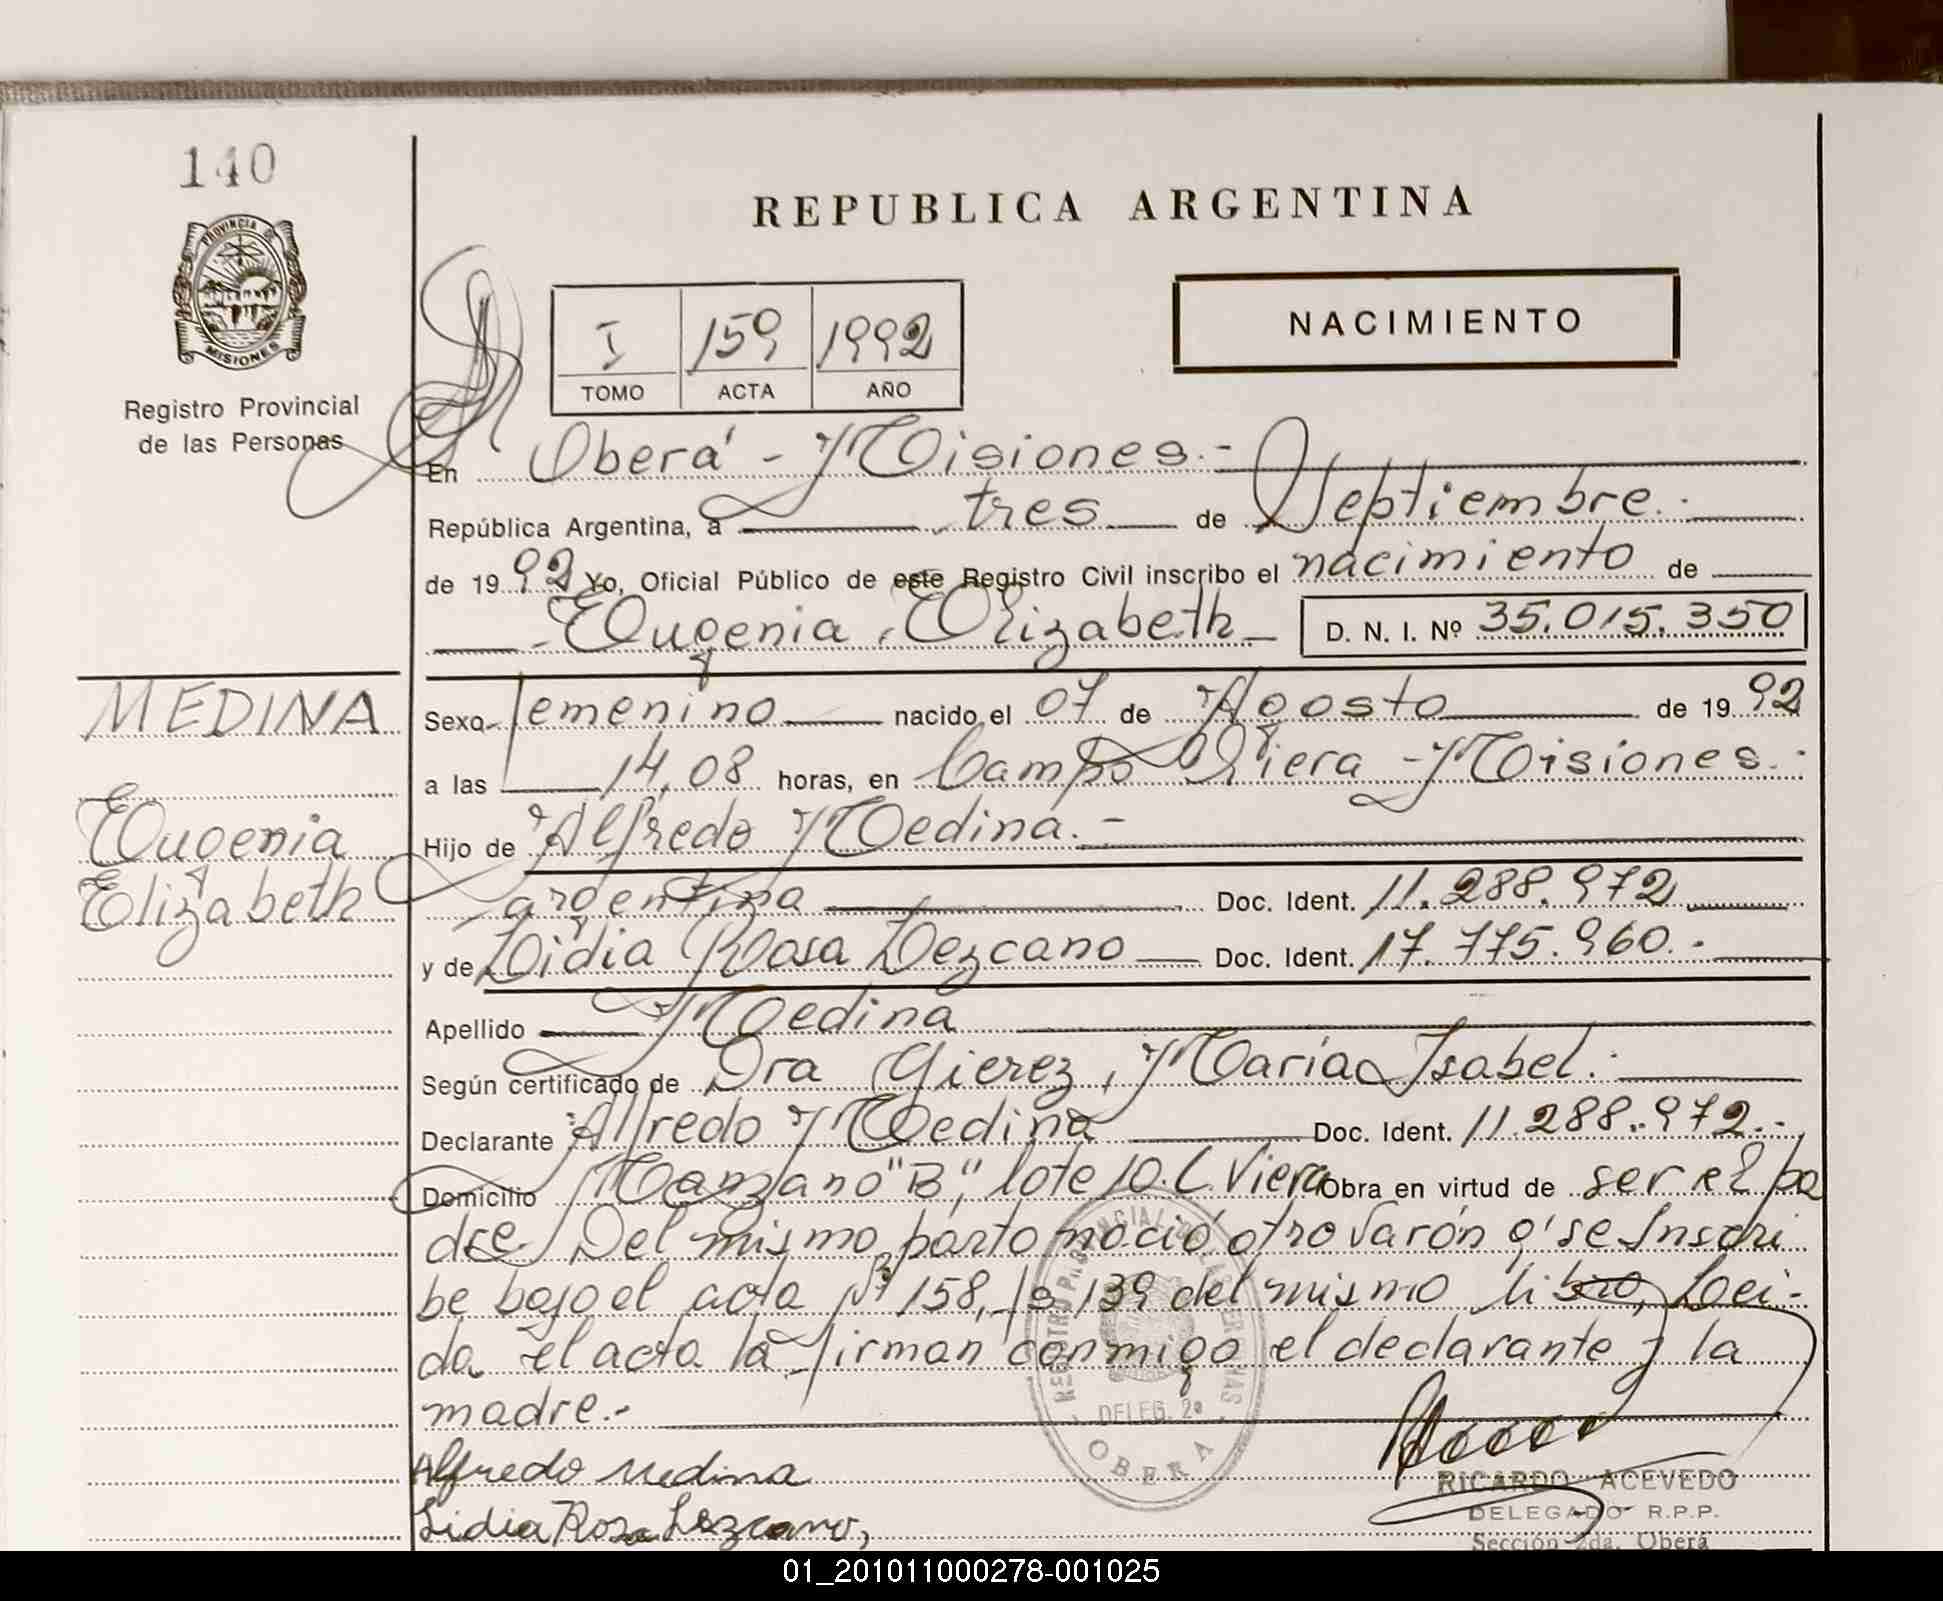 140
REPUBLICA ARGENTINA
PROVINCIA DE
MISIONES
I 159 1992
TOMO ACTA AÑO
NACIMIENTO
Registro Provincial
de las Personas
En Oberá - Misiones.-
República Argentina, a tres de Septiembre.-
de 1992 Yo, Oficial Público de este Registro Civil inscribo el nacimiento de
Eugenia, Elizabeth D. N. I. Nº 35.015.350
MEDINA
Sexo femenino nacido el 07 de Agosto de 1992
a las 14,08 horas, en Campo Viera - Misiones.-
Eugenia
Elizabeth
Hijo de Alfredo Medina.-
argentina Doc. Ident. 11.288.972
y de Lidia Rosa Lezcano Doc. Ident. 17.775.960.-
Apellido Medina
Según certificado de Dra Gierez, María Isabel.-
Declarante Alfredo Medina Doc. Ident. 11.288.972.-
Domicilio Manzano "B", lote 10. C. Viera Obra en virtud de ser el pa
dre. Del mismo parto nació otro varón q' se Inscri
be bajo el acta Nº 158, fs 139 del mismo libro, Leí-
da el acta la firman conmigo el declarante y la
madre.-
Alfredo Medina
Lidia Rosa Lezcano,
REGISTRO PROVINCIAL DE LAS PERSONAS
DELEG. 2a
OBERA
RICARDO ACEVEDO
DELEGADO R.P.P.
Sección 2da. Oberá
01_201011000278-001025